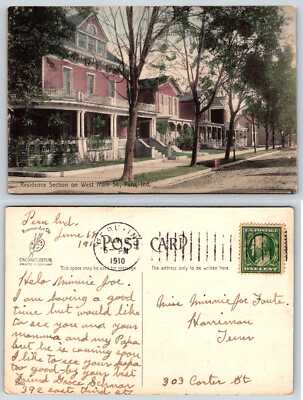 Residence Section on West Main St., Peru, Ind.
Peru Ind.
June 6th
1910
POST CARD
1910
This space may be used for message
The address only to be written here
Helo Minnie Joe.
I am having a good
time but would like
to see you and your
momma and my Papa
but he is coming soon
I like to see your papa
too good by your best
friend Grace Schwar
392 east third st
Miss Minnie Joe Foute.
Harriman
Tenn
303 Carter St
ONE CENT